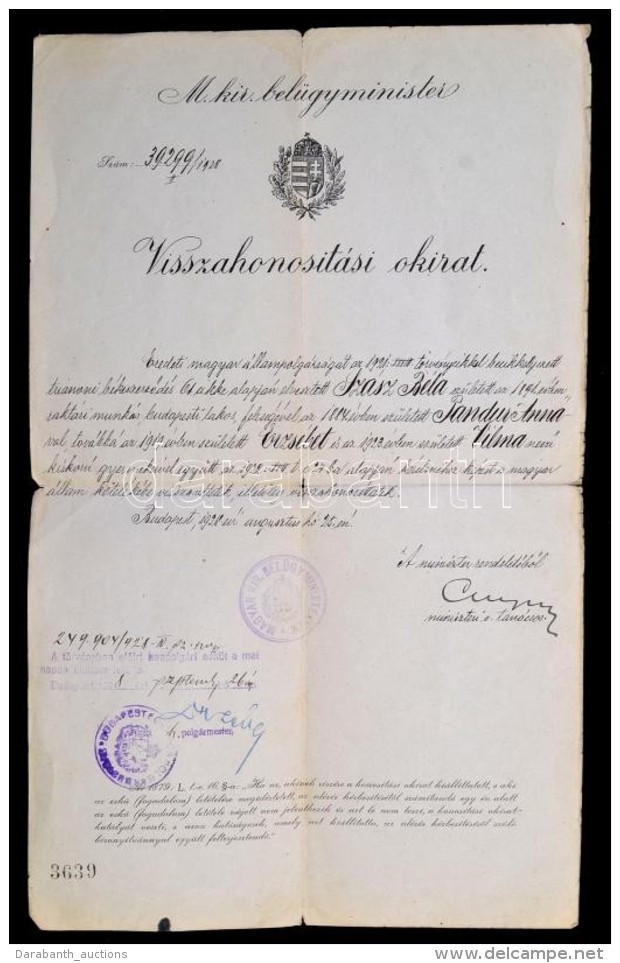 M. kir. belügyminister
Szám: 39299/1928
II
Visszahonositási okirat.
Eredeti magyar állampolgárságát az 1921. XXXIII törvénycikkel becikkelyezett
trianoni békeszerződés 61. cikke alapján elvesztett Szász Béla született az 1891. évben
raktári munkás budapesti lakos, feleségével az 1884 évben született Pandur Anna
val, továbbá az 1917 évben született Erzsébet és az 1922 évben született Vilma nevü
kiskorú gyermekeivel együtt az 1921. XXXIII t.c. alapján kezdetéhez képest a magyar
állam kötelékébe visszavétetik, illetőleg visszahonosittatik.
Budapest, 1928 évi augusztus hó 25.-én.
A miniszter rendeletéből
miniszteri o. tanácsos.
MAGYAR KIR. BELÜGYMINISZTER
249.904/928-III.
A törvényben előírt honpolgári esküt a mai
napon
Budapest, 8 szeptember 26 án
h. polgármester.
BUDAPEST
1879. L. t.-c. 16. §-a: "Ha az, akinek részére a honositási okirat kiállíttatott, s aki
az eskü (fogadalom) letételére megidéztetett, az idézés kézbesítésétől számítandó egy év alatt
az eskü (fogadalom) letétele végett nem jelentkezik és azt le nem teszi, a honositási okirat
hatályát veszti, s azon hatóságnak, amely azt kiállította, az idézés kézbesítéséről szóló
bizonyítvánnyal együtt felterjesztendő."
3639
darabanth
Darabanth_auctions
www.delcampe.net